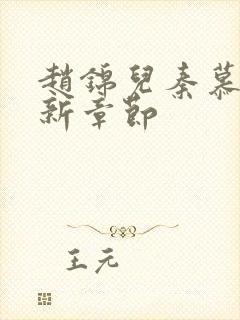 趙錦兒秦慕
新章節
王元